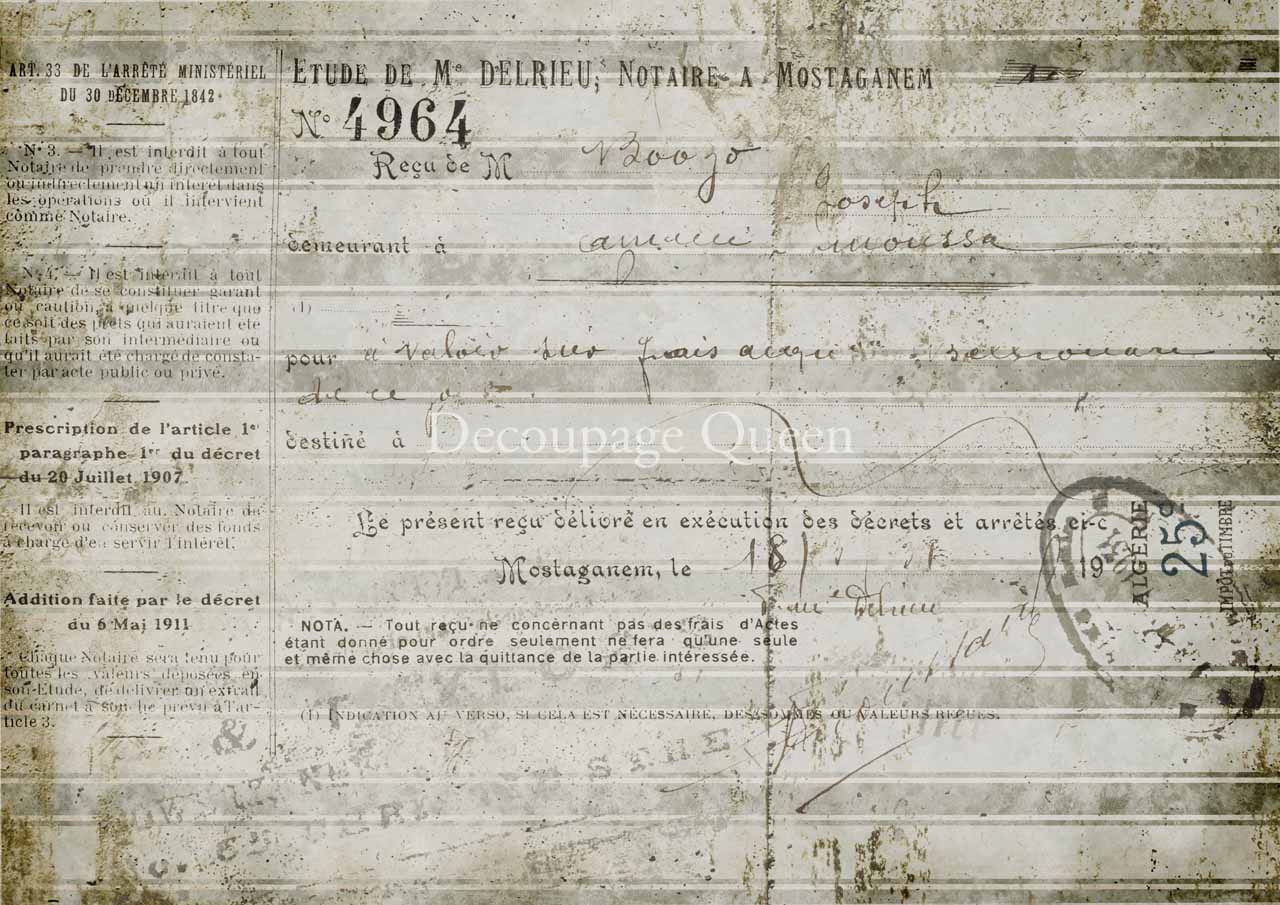 ART. 33 DE L'ARRÊTÉ MINISTÉRIEL
DU 30 DÉCEMBRE 1842
N° 3. — Il est interdit à tout
Notaire de prendre directement
ou indirectement un intérêt dans
les opérations où il intervient
comme Notaire.
N° 4. — Il est interdit à tout
Notaire de se constituer garant
ou caution, à quelque titre que
ce soit des prêts qui auraient été
faits par son intermédiaire ou
qu'il aurait été chargé de consta-
ter par acte public ou privé.
Prescription de l'article 1er
paragraphe 1er du décret
du 20 Juillet 1907
Il est interdit au Notaire de
recevoir ou conserver des fonds
à charge d'en servir l'intérêt.
Addition faite par le décret
du 6 Mai 1911
Chaque Notaire sera tenu pour
toutes les valeurs déposées en
son Etude, de délivrer un extrait
du carnet à souche prévu à l'ar-
ticle 3.
ETUDE DE Me DELRIEU, NOTAIRE A MOSTAGANEM
N° 4964
Reçu de M
Joseph
demeurant à moussa
(1)
pour à valoir sur frais
de ce
destiné à
Decoupage Queen
Le présent reçu délivré en exécution des décrets et arrêtés ci-c
Mostaganem, le 18 19
Delrieu
NOTA. — Tout reçu ne concernant pas des frais d'Actes
étant donné pour ordre seulement ne fera qu'une seule
et même chose avec la quittance de la partie intéressée.
(1) INDICATION AU VERSO, SI CELA EST NÉCESSAIRE, DES SOMMES OU VALEURS REÇUES.
ALGÉRIE
25c
IMPÔT DU TIMBRE